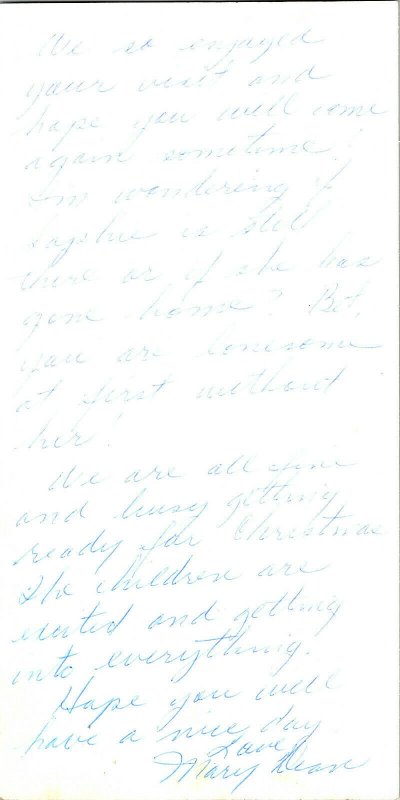 We so enjoyed
your visit and
hope you will come
again sometime!
I'm wondering if
Sophie is still
there or if she has
gone home? Bet
you are lonesome
at first without
her!
We are all fine
and busy getting
ready for Christmas
The children are
excited and getting
into everything.
Hope you will
have a nice day
Love,
Mary Dean